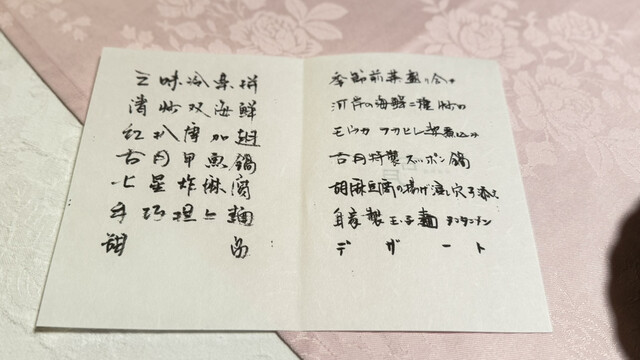 三味冷菜拼
清炒双海鮮
紅扒唐加翅
古月甲魚鍋
七星炸麻腐
手巧担々麺
甜品
季節前菜盛り合せ
沢岸の海鮮二種炒め
モウカフカヒレ煮込み
古月特製スッポン鍋
胡麻豆腐の揚げ浸し穴子添え
自家製玉子麺タンタンメン
デザート